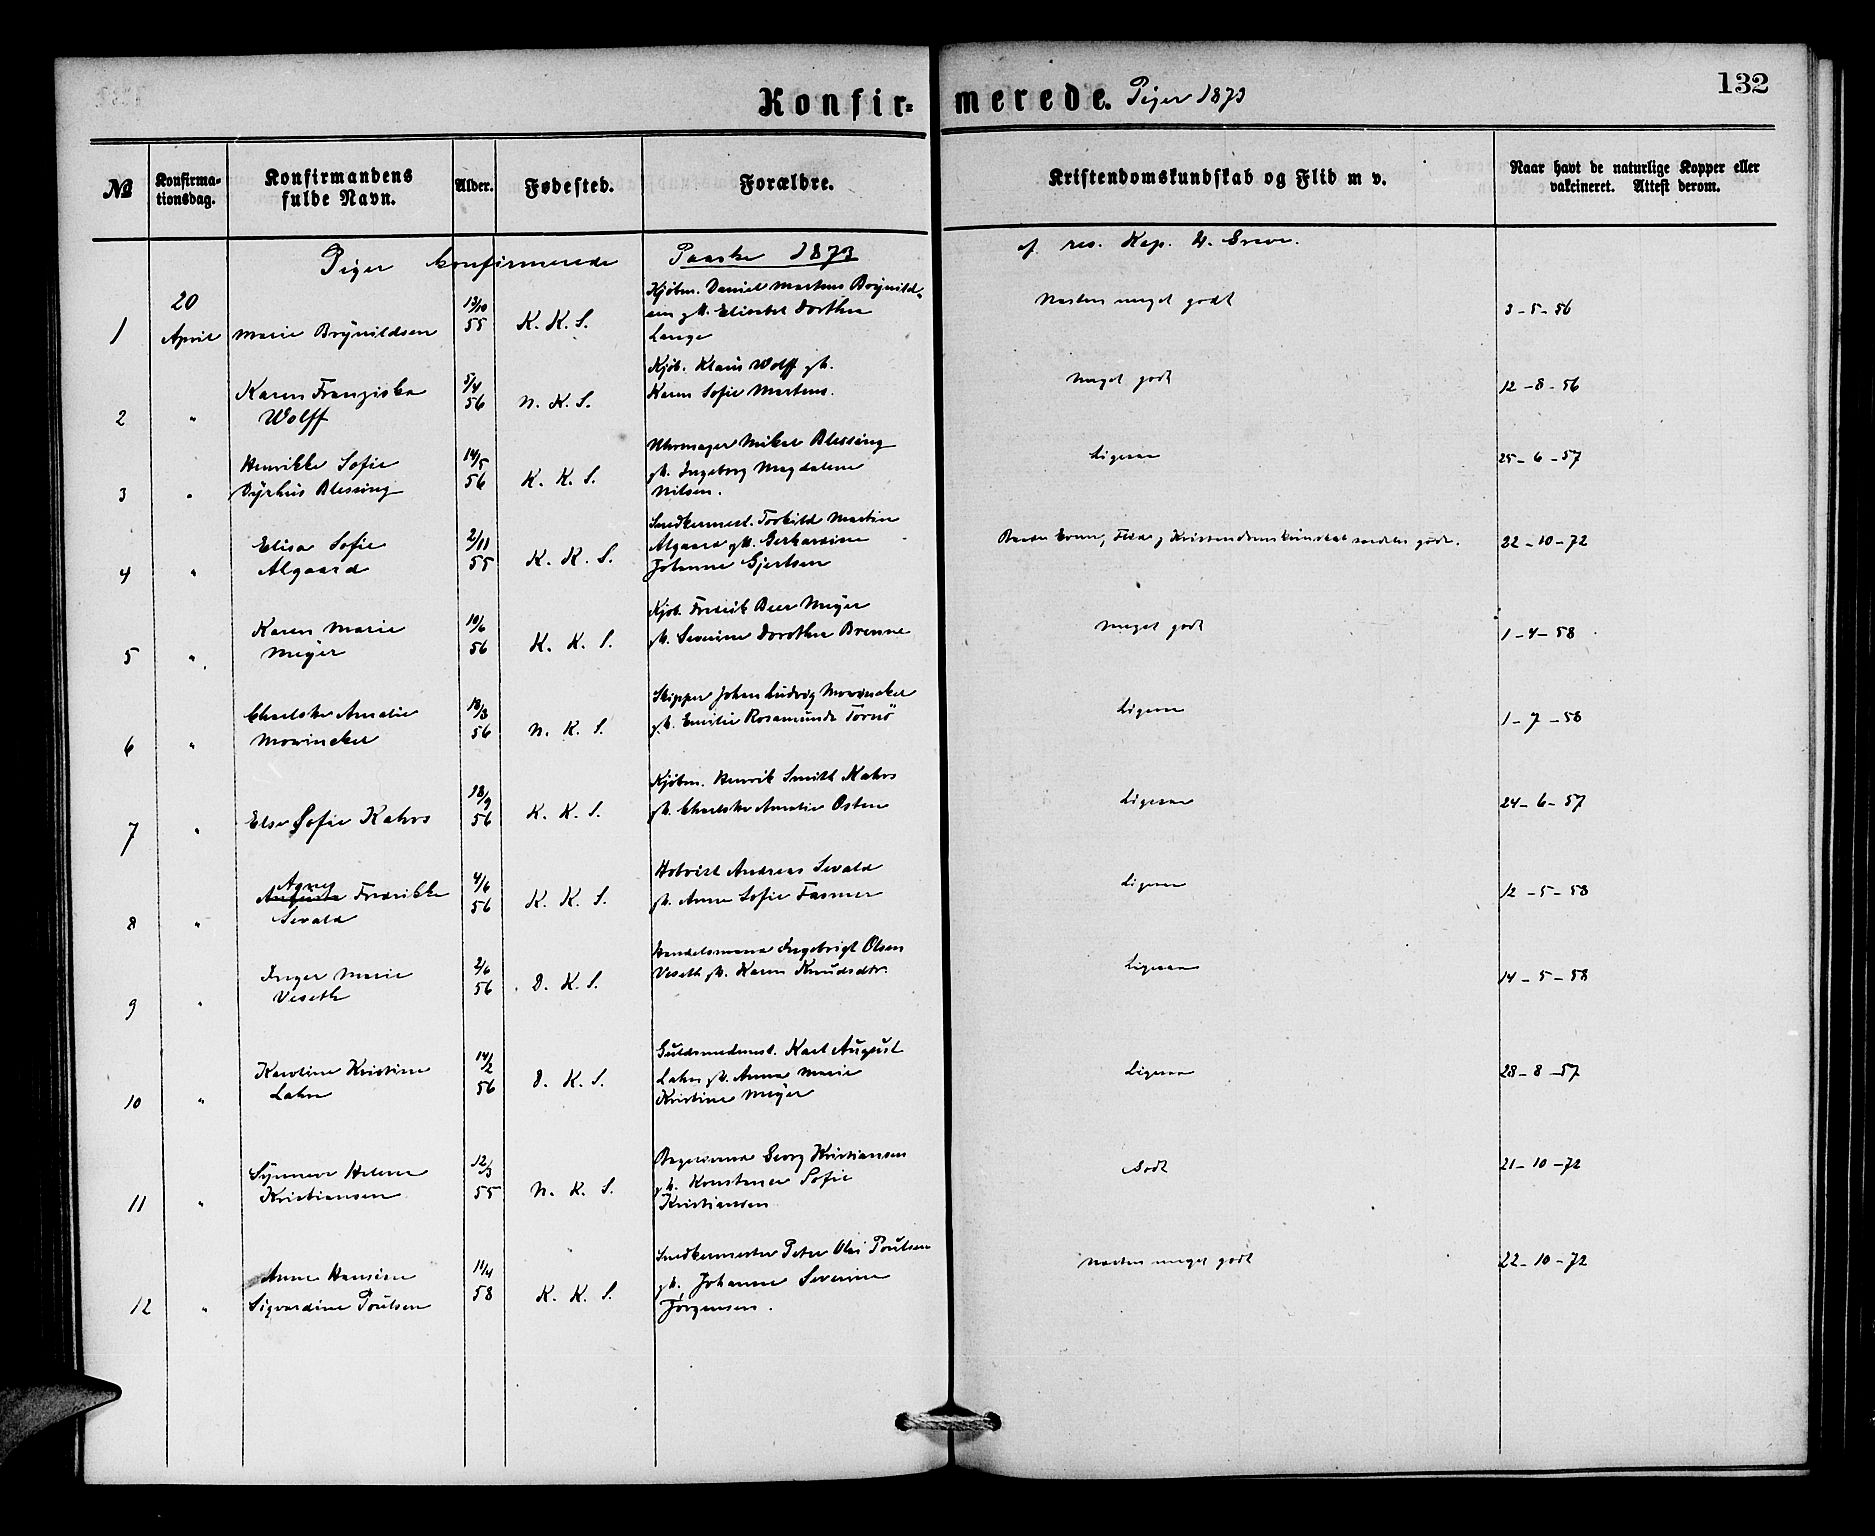 132
Konfir- merede. Piger 1873
№
Konfirma-
tionsdag.
Konfirmandens
fulde Navn.
Alder.
Fødested.
Forældre.
Kristendomskundskab og Flid m v.
Naar havt de naturlige Kopper eller
vakcineret. Attest derom.
Piger konfirmerede Paaske 1873 af res. Kap. W. Greve.
1
20
April
Marie Brynildsen
13/10
55
K. K. S.
Kjøbm. Daniel Martens Brynild-
sen gh. Elisabet Dorthea
Lange
Næsten meget godt
3-5-56
2
"
Karen Franziska
Wolff
5/4
56
N. K. S.
Kjøb. Klaus Wolff gh.
Karen Sofie Martens.
Meget godt
12-8-56
3
"
Henrikke Sofie
Dyrhus Blessing
14/5
56
K. K. S.
Uhrmager Mikal Blessing
gh. Ingeborg Magdalene
Nilsen.
Ligesaa
25-6-57
4
"
Elisa Sofie
Algaard
2/11
55
K. K. S.
Snedkermest. Torkild Martin
Algaard gh. Gerhardine
Johanne Gjertsen
Evner, Flid og Kristendomskundskab godt.
22-10-72
5
"
Karen Marie
Meyer
10/6
56
K. K. S.
Kjøb. Fredrik Beer Meyer
gh. Severine Dorothea Brenne
Meget godt
1-4-58
6
"
Charlotte Amalie
Mowinckel
18/3
56
N. K. S.
Skipper Johan Ludvig Mowinckel
gh. Emilie Rosamunda Tornö
Ligesaa
1-7-58
7
"
Else Sofie Kahrs
18/9
56
K. K. S.
Kjøbm. Henrik Smith Kahrs
gh. Charlotte Amalie Osten
Ligesaa
24-6-57
8
"
Agnes
Augusta Fredrikke
Sevald
4/6
56
K. K. S.
Andreas Sevald
gh. Anne Sofie Fasmer
Ligesaa
12-5-58
9
"
Inger Marie
Veseth
2/6
56
D. K. S.
Handelsmand Ingebrigt Olsen
Veseth gh. Karen Knudsdtr.
Ligesaa
14-5-58
10
"
Karoline Kristine
Lahn
14/2
56
D. K. S.
Guldsmedmest. Karl August
Lahn gh. Anna Marie
Kristine Meyer
Ligesaa
28-8-57
11
"
Synneve Helene
Kristiansen
12/3
55
N. K. S.
Georg Kristiansen
gh. Konstance Sofie
Kristiansen
Godt
21-10-72
12
"
Anne Hansine
Sigvardine Poulsen
11/4
58
K. K. S.
Snedkermester Peter Olai Poulsen
gh. Johanne Severine
Jørgensen.
Næsten meget godt
22-10-72